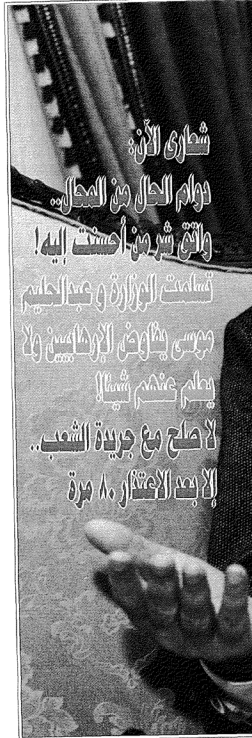 شعارى الآن:
دوام الحال من المحال..
واتق شر من أحسنت إليه!
تسلمت الوزارة و عبدالحليم
موسى يفاوض الإرهابيين ولا
يعلم عنهم شيئا!
لا صلح مع جريدة الشعب..
إلا بعد الاعتذار ٨٠ مرة